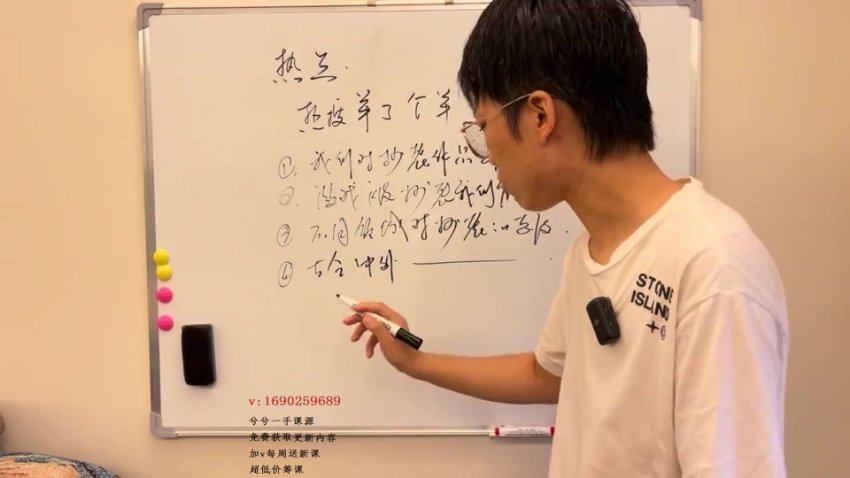 热点.
热搜 羊了个羊
①. 我们对抄袭作品
②. 游戏 抄袭我们
③ 不同领域对抄袭
④ 古今中外 ——
STONE
ISLAND
v:1690259689
兮兮一手课源
免费获取更新内容
加v每周送新课
超低价筹课